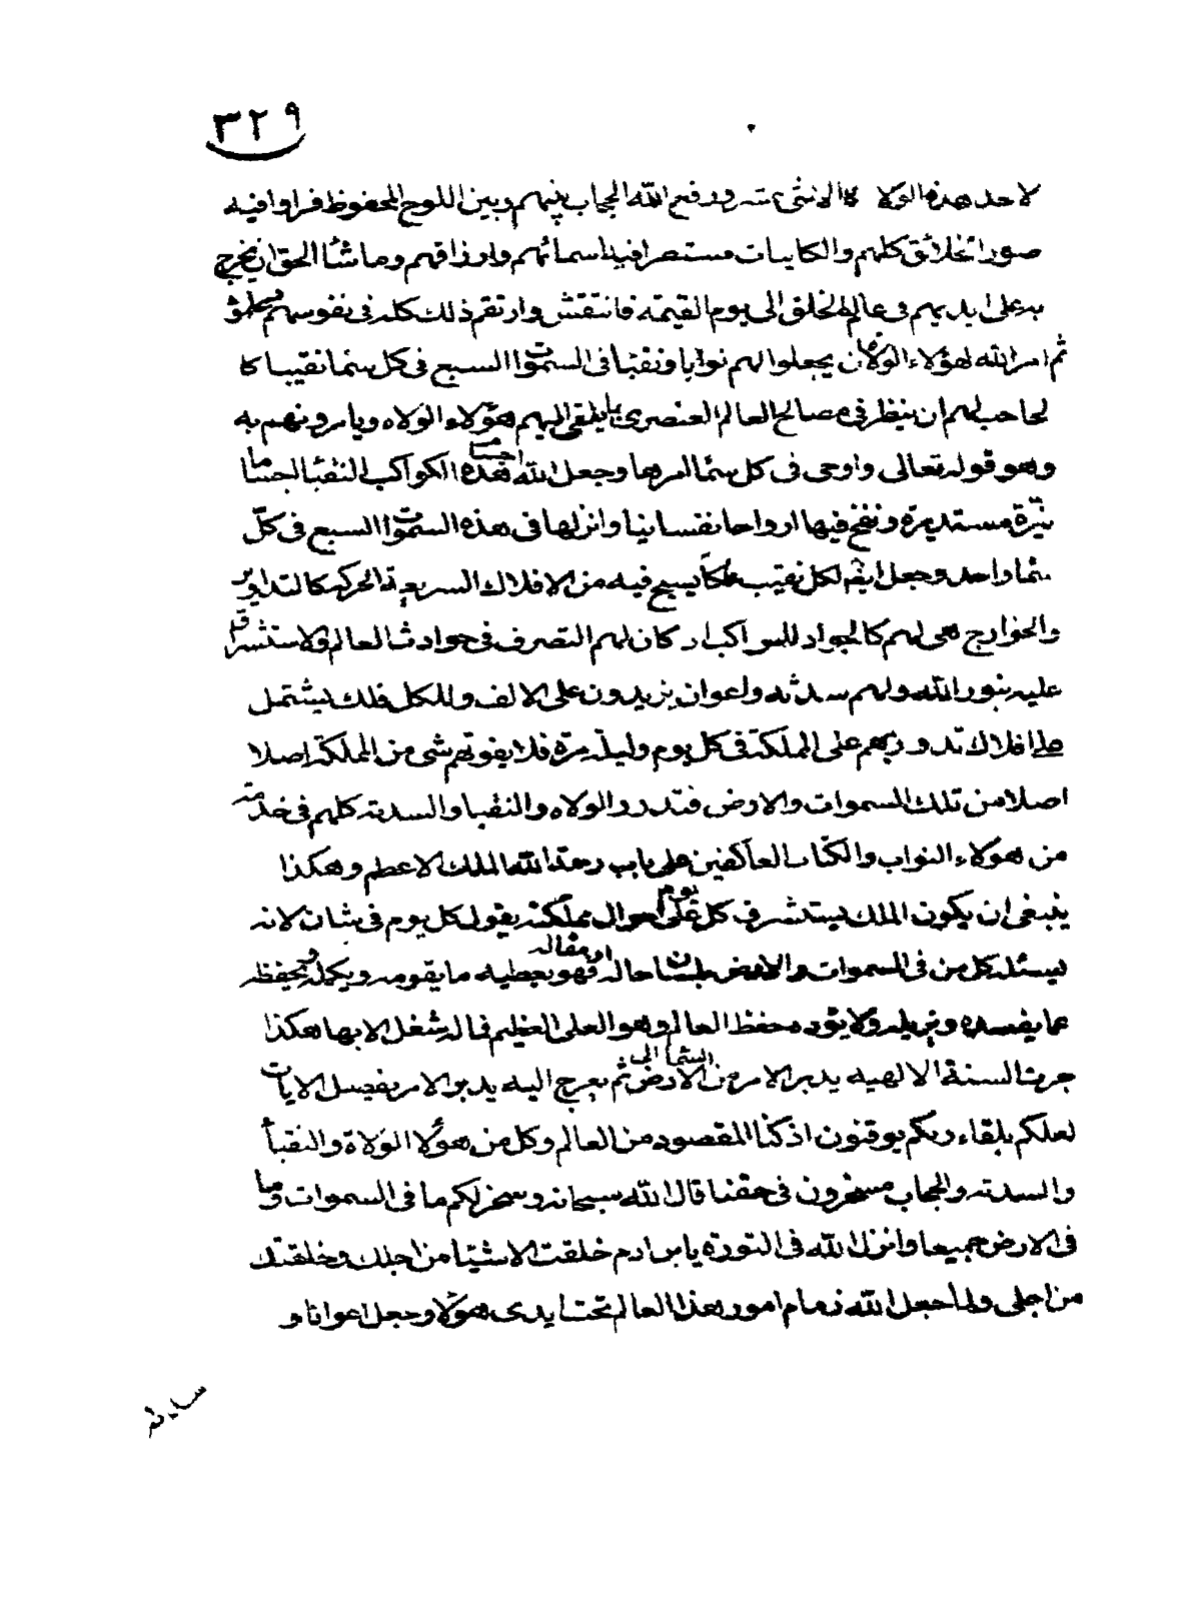 ٣٢٩
لاحد هذه الولاة الاثنى عشر ورفع الله الحجاب بينهم وبين اللوح المحفوظ فراوا فيه
صور الخلائق كلهم والكاينات مستطرا فيه اسمائهم وارزاقهم وما شاا الحق ان يخرج
به على ايديهم فى عالم الخلق الى يوم القيمة فانتقش وارتقم ذلك كله فى نفوسهم
ثم امر الله لهؤلاء الولاة ان يجعلوا لهم نوابا ونقبا فى السموات السبع فى كل سما نقيبا كا
لحاجب لهم ان ينظر فى مصالح العالم العنصرى بما يلقى اليهم هؤلاء الولاه ويامرونهم به
وهو قوله تعالى واوحى فى كل سما امرها وجعل الله اجسام هذه الكواكب النقبا اجساما
نيرة مستديرة ونفخ فيها ارواحا نفسانيا وانزلها فى هذه السموات السبع فى كل
سما واحد وجعل ايضا لكل نقيب فلكا يسبح فيه من الافلاك السريعة الحركه كالتداوير
والخوارج هى لهم كالجواد للراكب اذ كان لهم التصرف فى حوادث العالم والاستشراق
عليه بنور الله ولهم سدنه واعوان يزيدون على الالف وللكل فلك يشتمل
على افلاك تدور بهم على المملكة فى كل يوم وليلة مرة فلا يفوتهم شى من المملكة اصلا
اصلا من تلك السموات والارض فتدور الولاه والنقبا والسدنه كلهم فى خدمته
من هؤلاء النواب والكتاب العاكفين على باب رحمة الله الملك الاعظم وهكذا
ينبغى ان يكون الملك يستشرف كل يوم على احوال مملكته يقول كل يوم فى شان لانه
يسئله كل من فى السموات والارض بلسان حاله او مقاله فهو يعطيه ما يقومه ويكمله ويحفظه
عما يفسده ويزيله ولا يؤده حفظ العالم وهو العلى العظيم فماله شغل الا بها هكذا
جرت السنة الالهيه يدبر الامر من السما الى الارض ثم يعرج اليه يدبر الامر يفصل الايات
لعلكم بلقاء ربكم يوقنون اذ كنا المقصود من العالم وكل من هؤلا الولاة والنقبا
والسدنه والحجاب مسخرون فى حقنا قال الله سبحانه وسخر لكم ما فى السموات وما
فى الارض جميعا وانزل الله فى التورة يابن ادم خلقت الاشيا من اجلك وخلقتك
من اجلى ولما جعل الله زمام امور هذا العالم تحت ايدى هؤلا وجعل اعوانا و